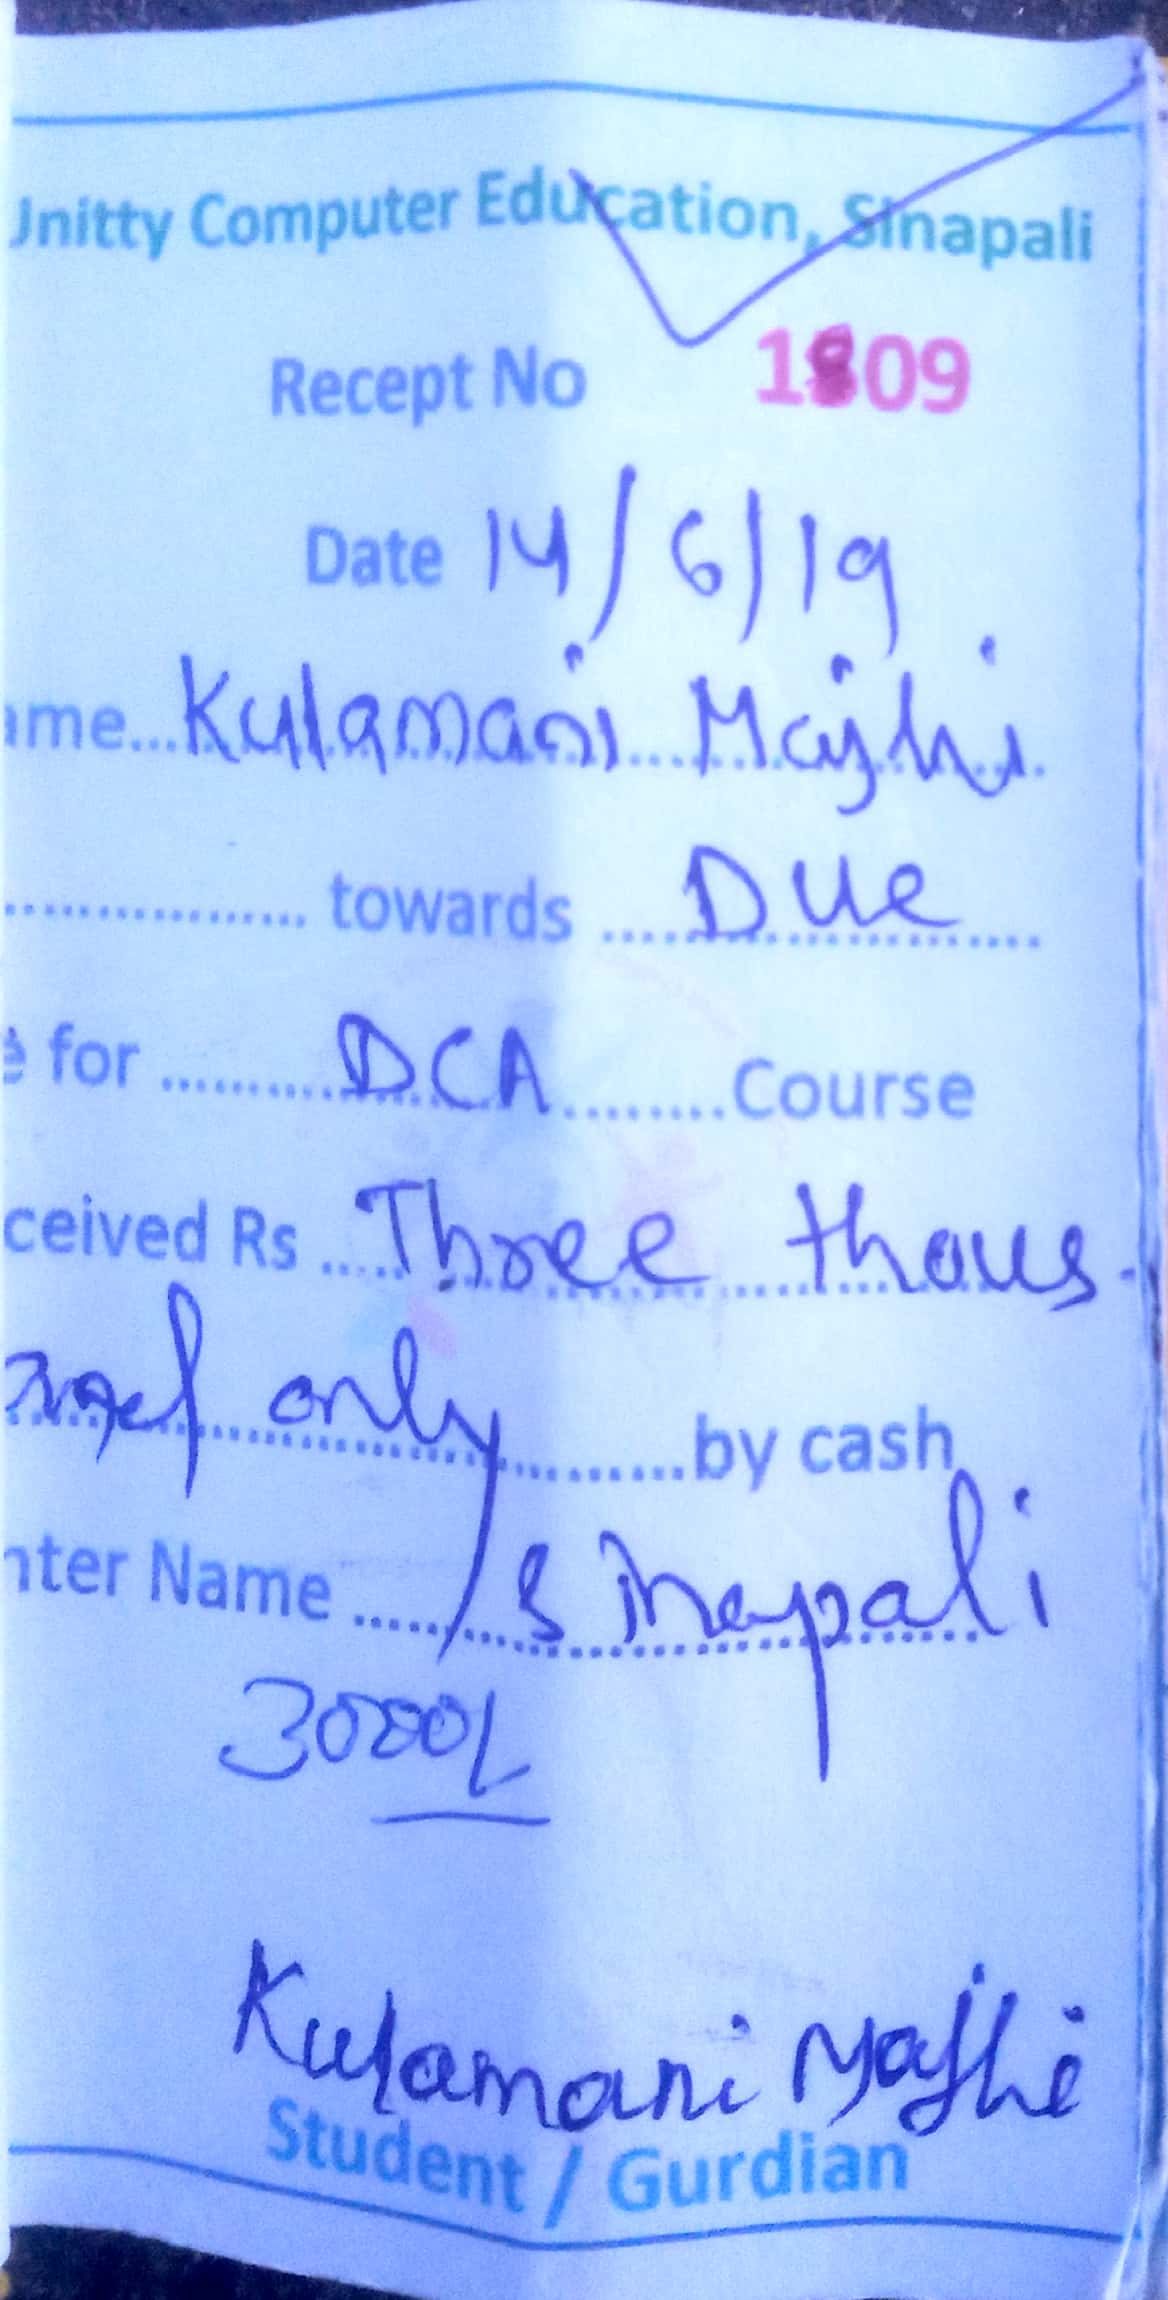 Unitty Computer Education, Sinapali
Recept No 1809
Date 14/6/19
ame...Kulamani....Majhi.
.................. towards ....Due......
e for ..........DCA........Course
ceived Rs ....Three thous-
and only...........by cash
nter Name ......Sinapali
3000/-
Kulamani Majhi
Student / Gurdian